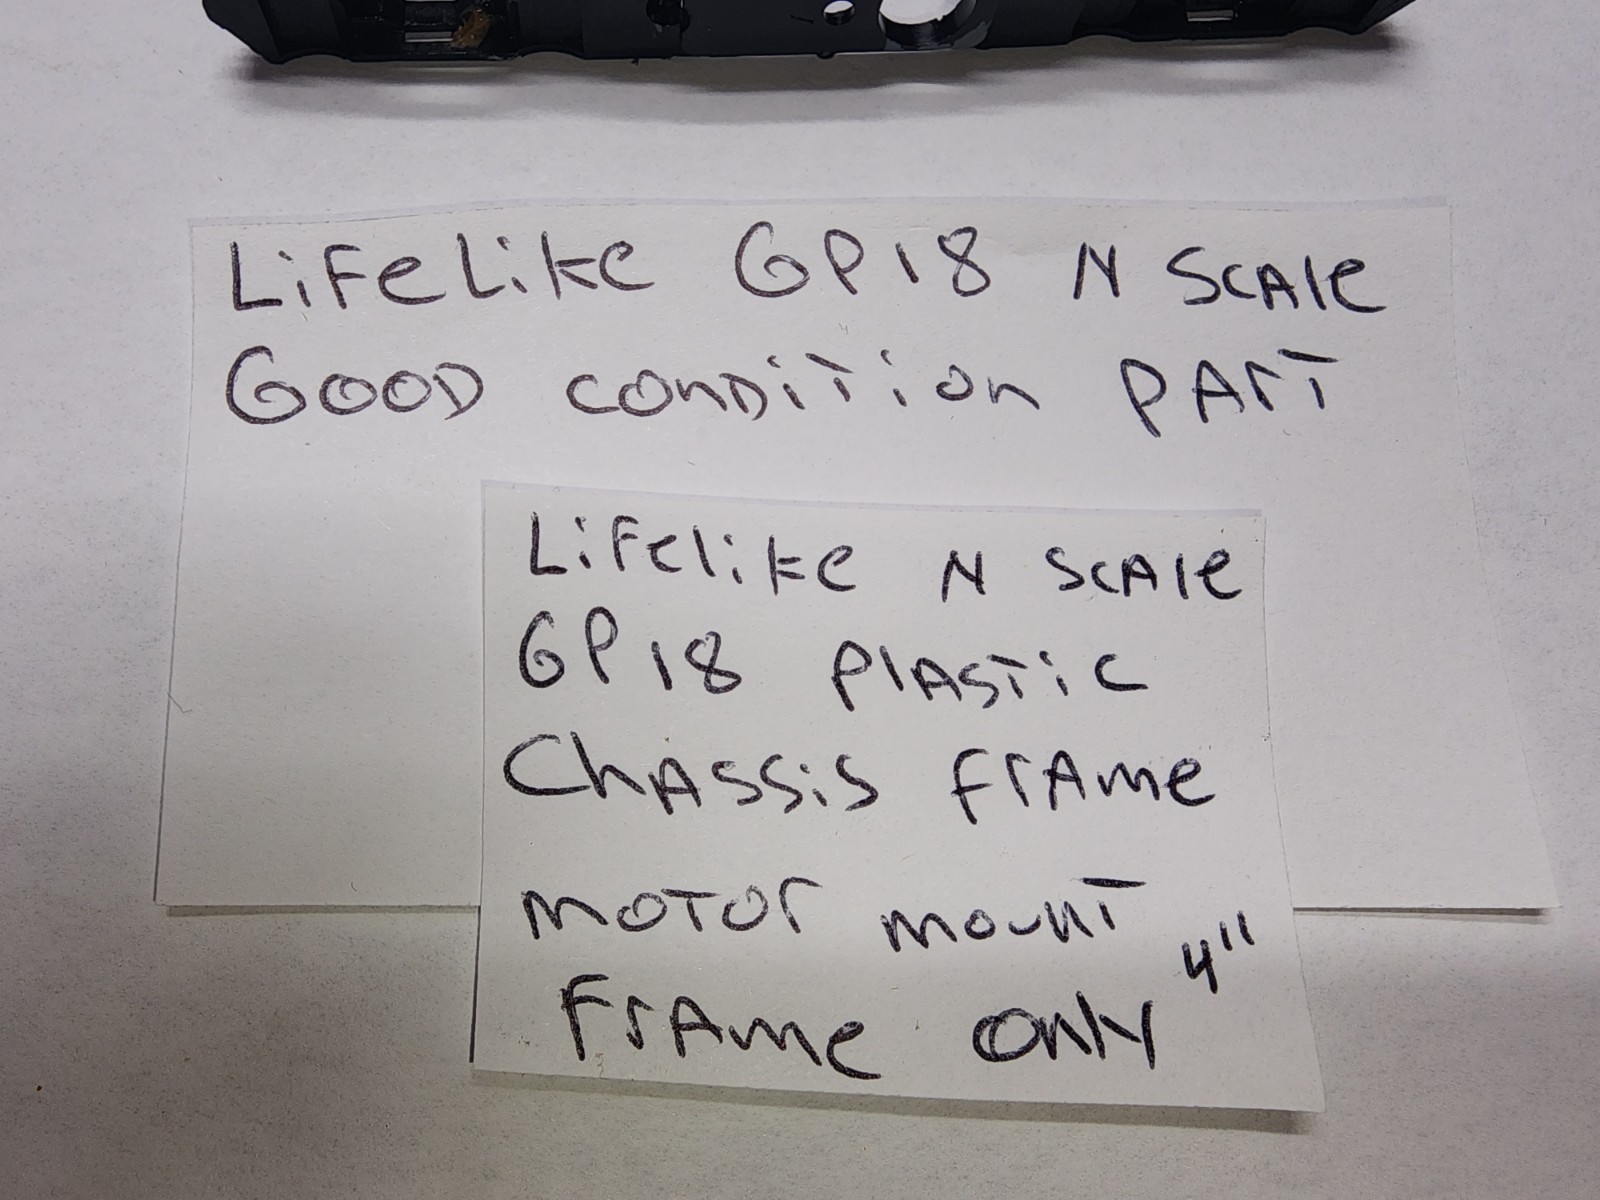 LiFeLike GP18 N SCAle
GOOD conDiTion PArT
LiFelike N SCAle
GP18 PlASTiC
ChASSiS FrAme
moTor mounT
4"
FrAme Only